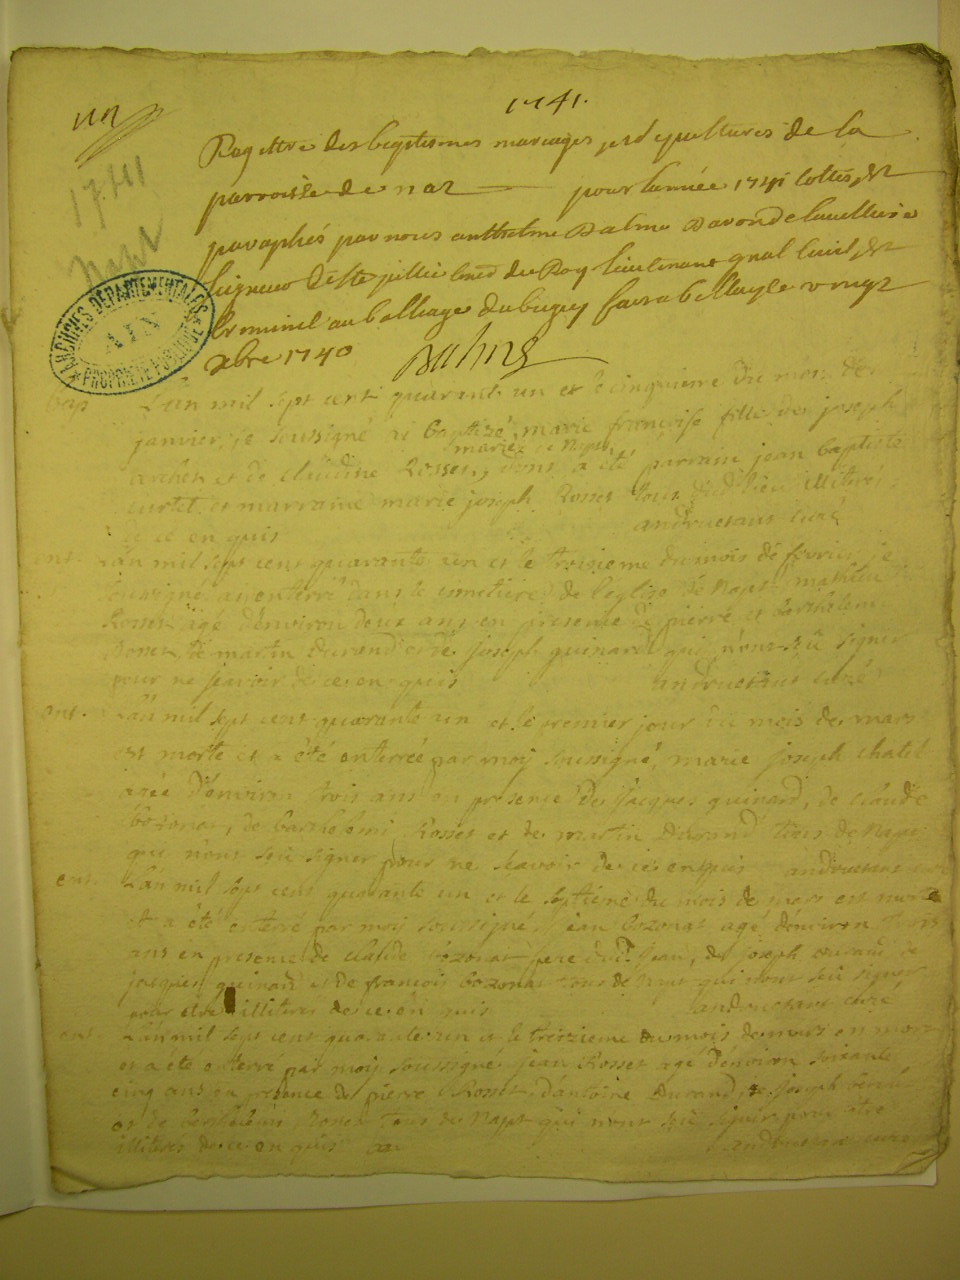 1741.
Regittre des baptesmes mariages et sepultures de la
parroisse de nax pour lannée 1741 Cottés, et
paraphés par nous anthelme Balme Baron de
Seigneur de Ste jullie Cons.er du Roy Lieutenant gnal Civil, et
Criminel au balliage du bugey fait a bellay le vingt
Xbre 1740 Balme
1741
Napt
ARCHIVES DÉPARTEMENTALES
AIN
PROPRIÉTÉ PUBLIQUE
bap L'an mil sept cent quarante un et le cinquieme du mois de
janvier je soussigné ai baptizé marie françoise fille de joseph
mariés de Napt
et de claudine Rosset, dont a été parrain jean baptiste
et marraine marie joseph Rosset tous dud lieu illiterés
de ce enquis andruetant curé
ent. L'an mil sept cent quarante un et le troisieme du mois de fevrier je
soussigné ai enterré dans le cimetiere de l'eglise de Napt mathieu
Rosset agé d'environ deux ans en presence de pierre et barthelemi
Rosset de martin durand et de joseph guinard qui n'ont sçû signer
pour ne sçavoir de ce enquis andruetant curé
ent. L'an mil sept cent quarante un et le premier jour du mois de mars
est morte et a été enterrée par moy soussigné, marie joseph chatel
agée d'environ trois ans en presence de jacques guinard, de claude
bozonat, de barthelemi Rosset et de martin durand tous de Napt
qui n'ont sçu signer pour ne sçavoir de ce enquis andruetant curé
ent. L'an mil sept cent quarante un et le septieme du mois de mars est mort
et a été enterré par moy soussigné, jean bozonat agé d'environ trois
ans en presence de claude bozonat pere dud. jean, de joseph durand de
jacques guinard et de francois bozonat tous de Napt qui n'ont sçu signer
pour etre illiterés de ce enquis andruetant curé
ent. L'an mil sept cent quarante un et le treizieme du mois de mars est mort
et a été enterré par moy soussigné jean Rosset agé d'environ soixante
cinq ans en presence de pierre Rosset d'antoine durand de joseph
et de barthelemi Rosset tous de Napt qui n'ont sçû signer pour etre
illiterés de ce enquis andruetant curé